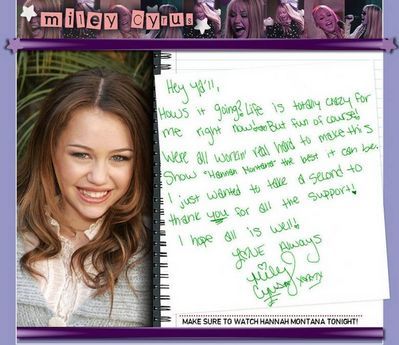 miley cyrus
Hey Ya'll,
Hows it going? Life is totally crazy for
me right now... But fun of course!
Were all workin' real hard to make this
Show "Hannah Montana" the best it can be.
I just wanted to take a second to
thank you for all the support!
I hope all is well!
LOVE Always
Miley
Cyrus xoxo
MAKE SURE TO WATCH HANNAH MONTANA TONIGHT!